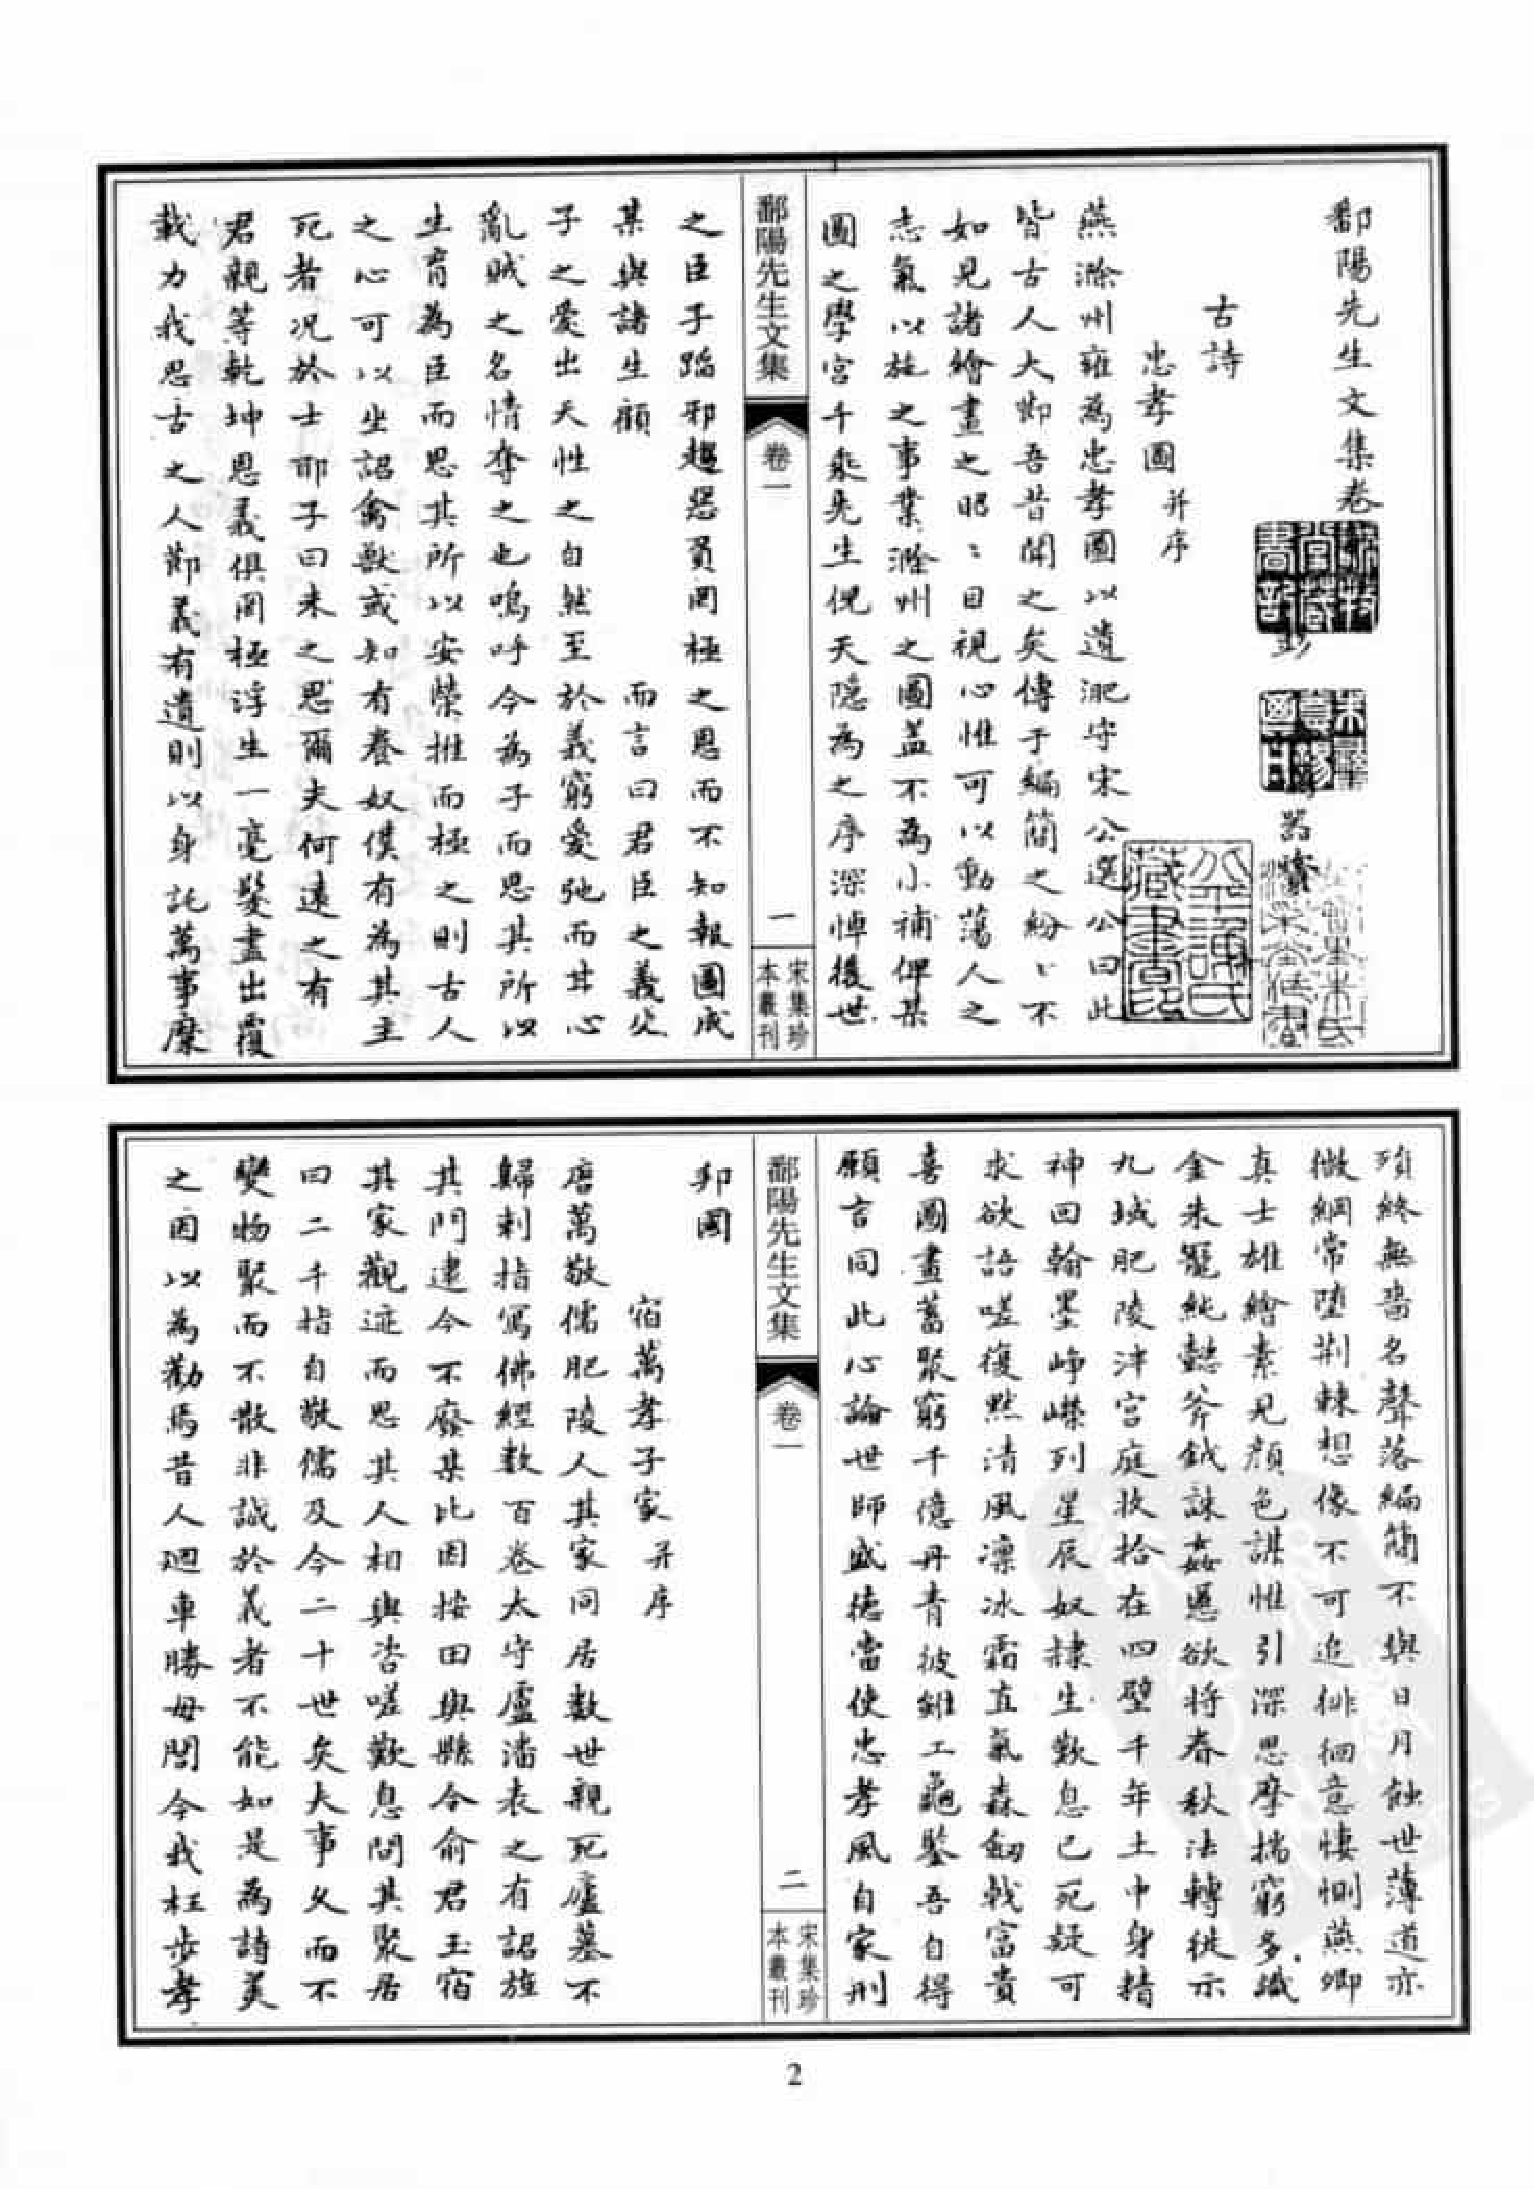 鄱陽先生文集卷
彭
器資
古詩
忠孝圖并序
燕滁州雍為忠孝圖以遺淝守宋公選公曰此
皆古人大節吾昔聞之矣傳于編簡之紛〻不
如見諸繪畫之昭〻目視心惟可以動蕩人之
志氣以施之事業滁州之圖蓋不為小補俾某
圖之學宮千乘先生倪天隱為之序深悼後世
鄱陽先生文集
卷一
一
宋集珍
本叢刊
之臣子蹈邪趨惡負罔極之恩而不知報圖成
某與諸生顧
而言曰君臣之義父
子之愛出天性之自然至於義窮愛弛而其心
亂賊之名情奪之也嗚呼今為子而思其所以
生育為臣而思其所以安榮推而極之則古人
之心可以坐詔禽獸或知有養奴僕有為其主
死者況於士耶子曰未之思爾夫何遠之有
君親等乾坤恩義俱罔極浮生一毫髮盡出覆
載力我思古之人節義有遺則以身託萬事糜
殞終無嗇名聲落編簡不與日月蝕世薄道亦
微綱常墮荆棘想像不可追徘徊意悽惻燕卿
真士雄繪素見顏色諶惟引深思摩揣窮多識
金朱寵純懿斧鉞誅姦慝欲將春秋法轉從示
九域肥陵泮宮庭收拾在四壁千年土中身精
神回翰墨崢嶸列星辰奴隸生歎息已死疑可
求欲語嗟復默清風凛冰霜直氣森劒戟富貴
喜圖畫蓄聚窮千億丹青披錐工龜鑒吾自得
願言同此心論世師盛德當使忠孝風自家刑
鄱陽先生文集
卷一
二
宋集珍
本叢刊
邦國
宿萬孝子家并序
唐萬敬儒肥陵人其家同居數世親死廬墓不
歸刺指寫佛經數百卷太守盧潘表之有詔旌
其門逮今不廢某比因按田與縣令俞君玉宿
其家觀迹而思其人相與咨嗟歎息問其聚居
曰二千指自敬儒及今二十世矣夫事久而不
變物聚而不散非誠於義者不能如是為詩美
之因以為勸焉昔人廻車勝母閭今我枉步孝
2